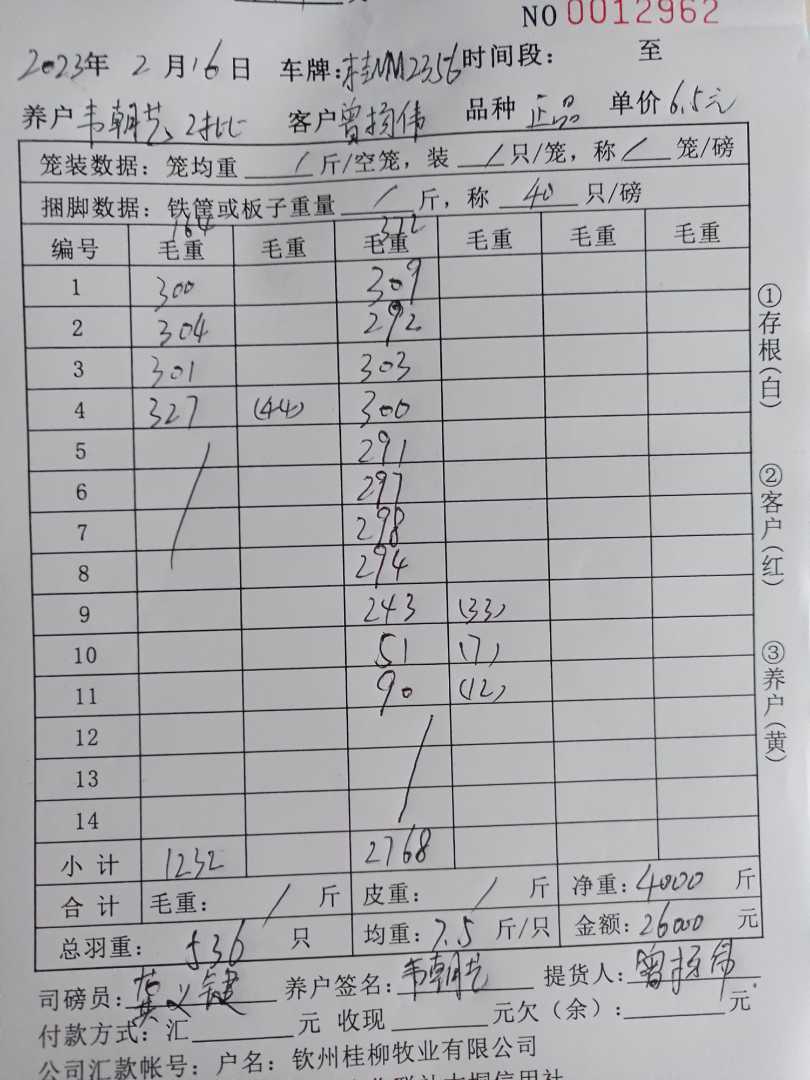 NO 0012962
2023年 2月16日 车牌:桂NM2356 时间段: 至
养户 韦朝艺、2批 客户 曾扬伟 品种 正品 单价 6.5元
笼装数据: 笼均重 / 斤/空笼, 装 / 只/笼, 称 / 笼/磅
捆脚数据: 铁筐或板子重量 / 斤, 称 40 只/磅
164 372
编号 毛重 毛重 毛重 毛重 毛重 毛重
1 300 309
2 304 292
3 301 303
4 327 (44) 300
5 291
6 297
7 298
8 294
9 243 (33)
10 51 (7)
11 90 (12)
12
13
14
小计 1232 2768
合计 毛重: / 斤 皮重: / 斤 净重:4000 斤
总羽重: 536 只 均重:7.5 斤/只 金额:26000 元
司磅员: 黄义键 养户签名: 韦朝艺 提货人: 曾扬伟
付款方式: 汇 元 收现 元欠(余): 元
公司汇款帐号: 户名: 钦州桂柳牧业有限公司
①存根(白)
②客户(红)
③养户(黄)